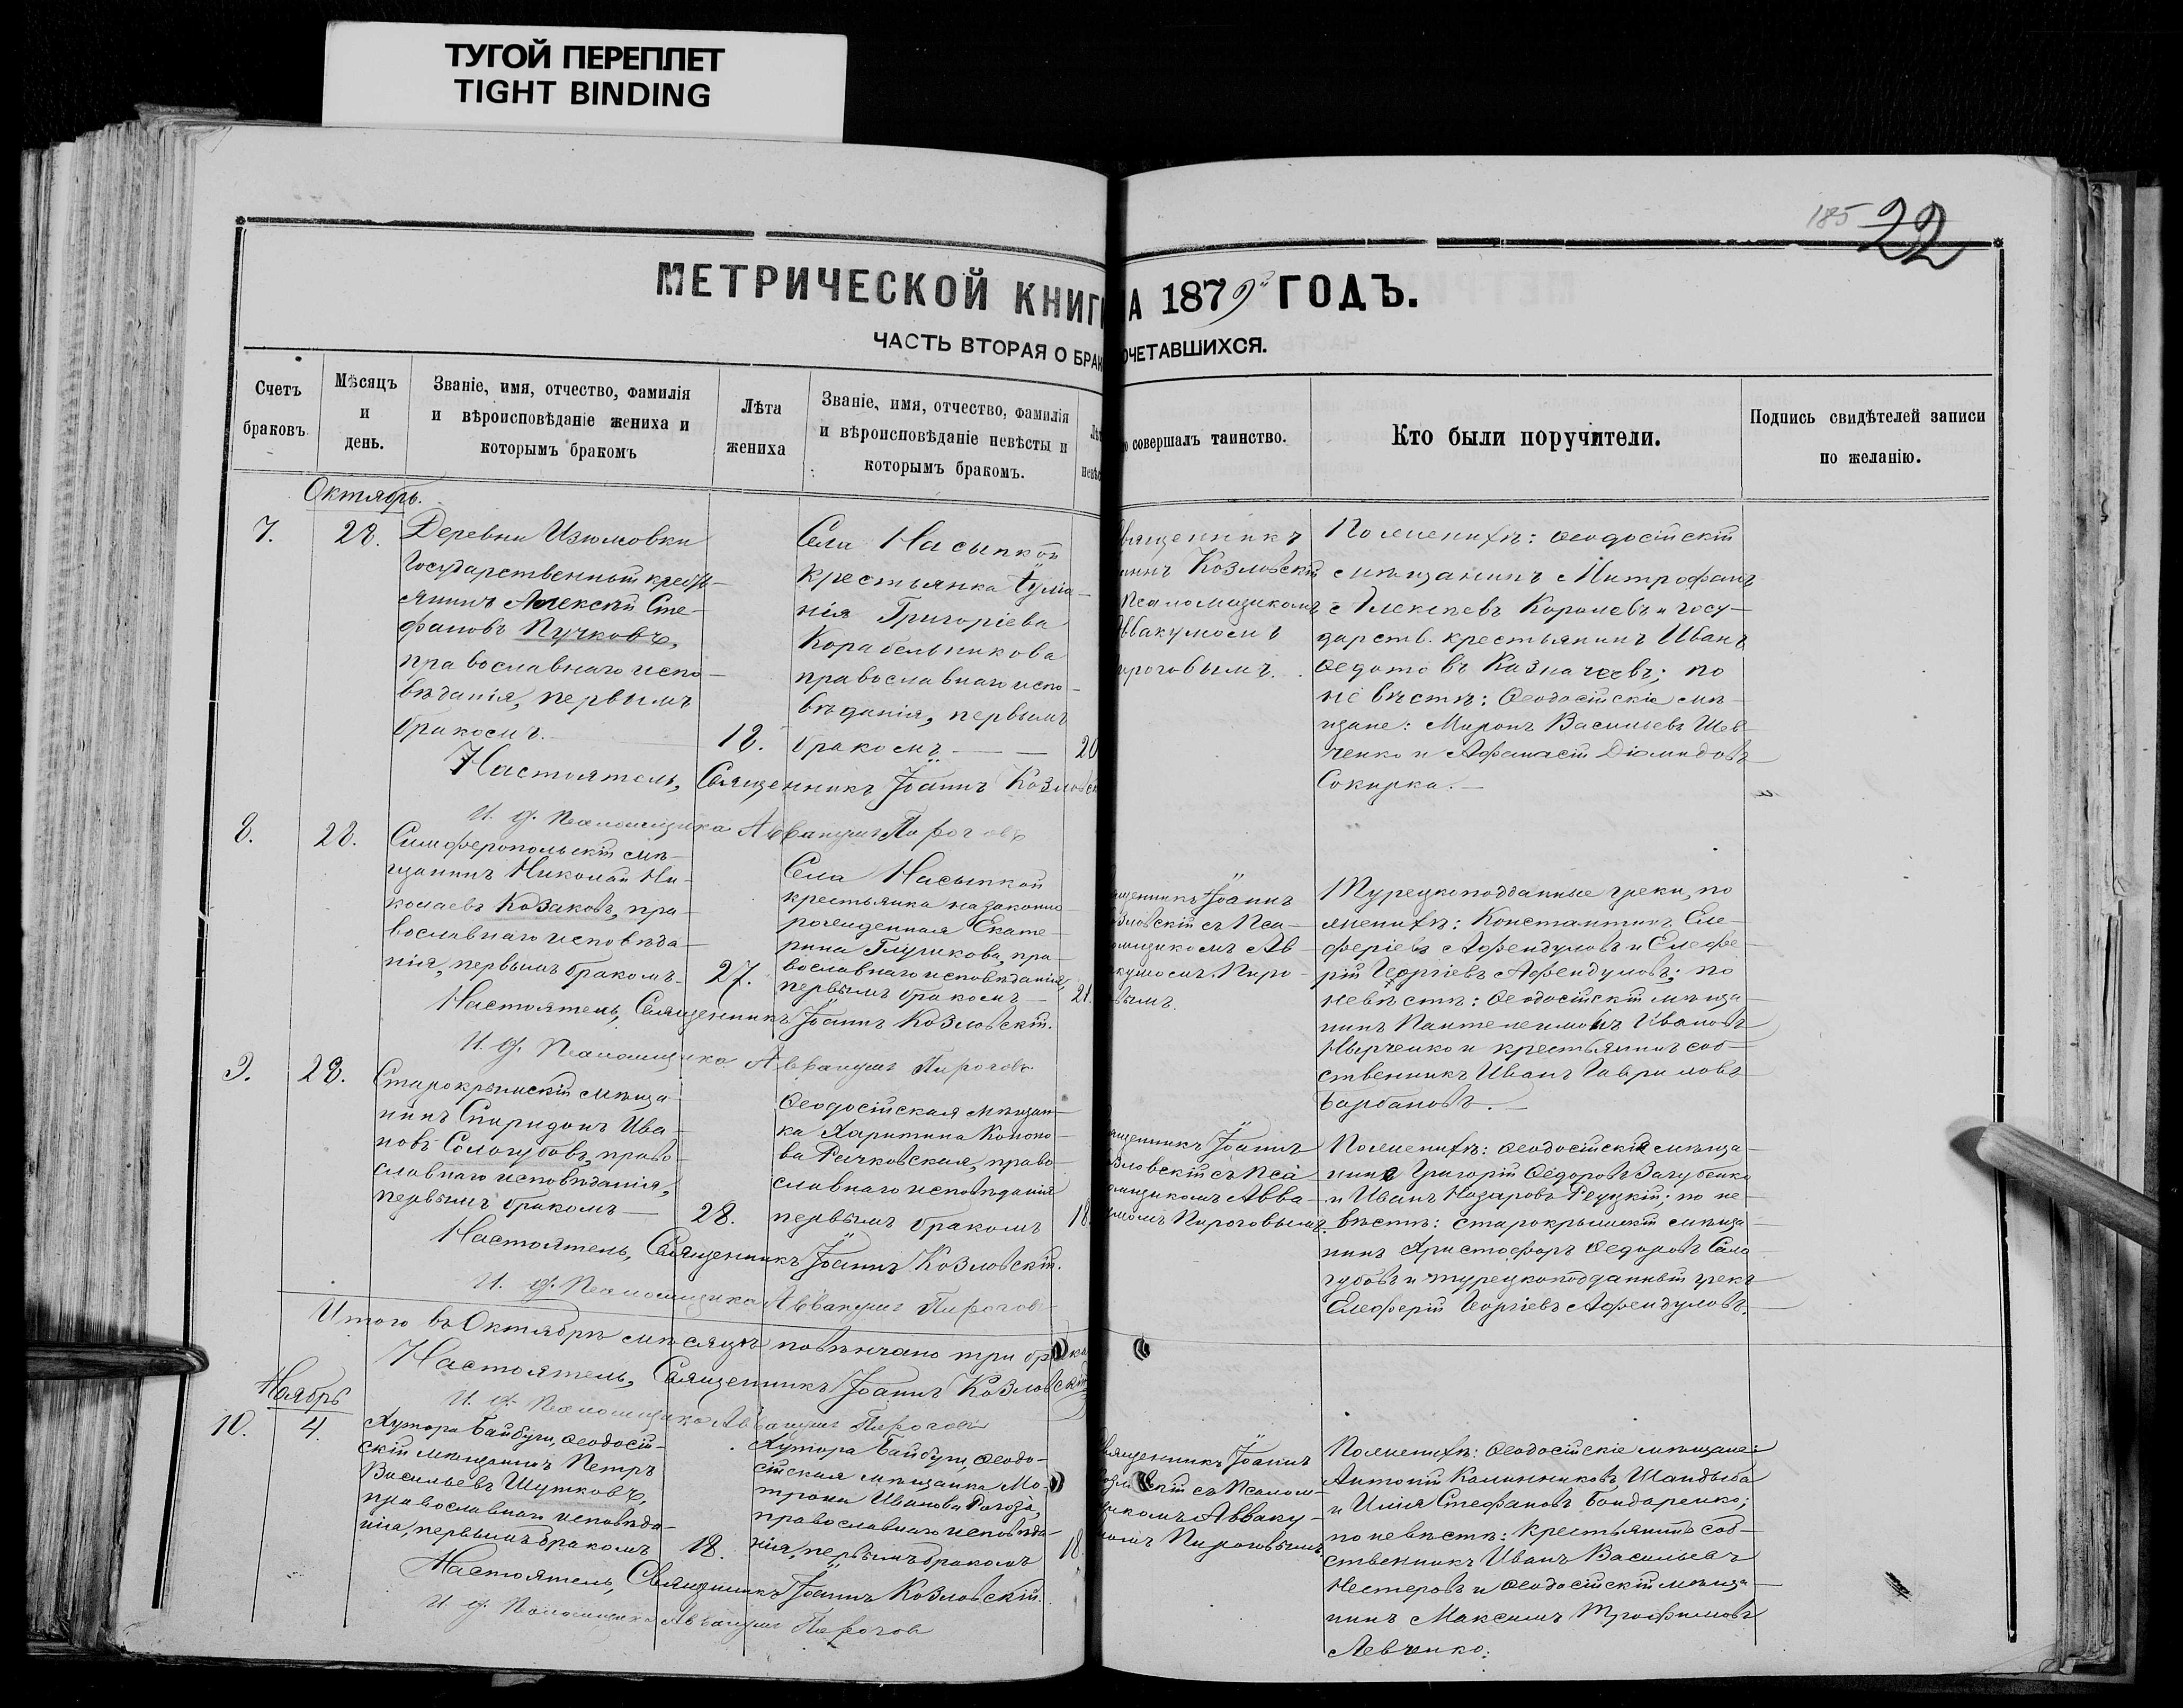 ТУГОЙ ПЕРЕПЛЕТ
TIGHT BINDING
185 22
МЕТРИЧЕСКОЙ КНИГ
А 1879й ГОДЪ.
ЧАСТЬ ВТОРАЯ О БРАК
ОЧЕТАВШИХСЯ.
Счетъ
браковъ.
Мѣсяцъ
и
день.
Званіе, имя, отчество, фамилія
и вѣроисповѣданіе жениха и
которымъ бракомъ
Лѣта
жениха
Званіе, имя, отчество, фамилія
и вѣроисповѣданіе невѣсты и
которымъ бракомъ.
Лѣ
невѣс
о совершалъ таинство.
Кто были поручители.
Подпись свидѣтелей записи
по желанію.
Октябрь.
7.
28.
Деревни Изюмовки
Государственный кресть-
янинъ Алексѣй Сте-
фановъ Пучковъ,
православнаго испо-
вѣданія, первымъ
бракомъ.
18.
Села Насыпкой
крестьянка
Григоріева
Корабельникова
православнаго испо-
вѣданія, первымъ
бракомъ
20
вященникъ
аннъ Козловскій
Псаломщикомъ
ввакумомъ
ироговымъ.
По женихѣ: Ѳеодосійскій
мѣщанинъ Митрофанъ
Алексѣевъ Королевъ и госу-
дарств. крестьянинъ Иванъ
Ѳедотовъ Казначеевъ; по
невѣстѣ: Ѳеодосійскіе мѣ-
щане: Миронъ Васильевъ Шев-
ченко и Афанасій Діомидовъ
Сокирка.
Настоятель, Священникъ Іоаннъ Козловск
И. д. Псаломщика Аввакумъ Пироговъ
8.
28.
Симферопольскій мѣ-
щанинъ Николай Ни-
колаевъ Козаковъ, пра-
вославнаго исповѣда-
нія, первымъ бракомъ
27.
Села Насыпкой
крестьянка незаконно
рожденная Екате-
рина Глушкова, пра-
вославнаго исповѣданія,
первымъ бракомъ
21.
ященникъ Іоаннъ
озловскій съ Пса-
омщикомъ Ав-
кумомъ Пиро-
вымъ.
Турецкоподданные греки, по
женихѣ: Константинъ Еле-
феріевъ Афендуловъ и Елефе-
рій Георгіевъ Афендуловъ; по
невѣстѣ: Ѳеодосійскій мѣща-
нинъ Пантелеимонъ Ивановъ
Нырченко и крестьянинъ соб-
ственникъ Иванъ Гавриловъ
Барбановъ.
Настоятель, Священникъ Іоаннъ Козловскій.
И. д. Псаломщика Аввакумъ Пироговъ
9.
28.
Старокрымскій мѣща-
нинъ Спиридонъ Ива-
новъ Сологубовъ, право-
славнаго исповѣданія,
первымъ бракомъ
28.
Ѳеодосійская мѣщан-
ка Харитина Конono-
ва Рачковская, право-
славнаго исповѣданія
первымъ бракомъ
18.
ященникъ Іоаннъ
зловскій съ Пса-
омщикомъ Авва-
умомъ Пироговымъ.
По женихѣ: Ѳеодосійскій мѣща-
нинъ Григорій Ѳедоровъ Загубенко
и Иванъ Назаровъ Рецукій; по не-
вѣстѣ: старокрымскій мѣща-
нинъ Христофоръ Ѳедоровъ Соло-
губовъ и турецкоподданный грекъ
Елеферій Георгіевъ Афендуловъ.
Настоятель, Священникъ Іоаннъ Козловскій.
И. д. Псаломщика Аввакумъ Пироговъ
Итого въ Октябрѣ мѣсяцѣ повѣнчано три брака
Настоятель, Священникъ Іоаннъ Козловскій
И. д. Псаломщика Аввакумъ Пироговъ
Ноябрь
10.
4.
Хутора Байбуги, Ѳеодосій-
скій мѣщанинъ Петръ
Васильевъ Шутковъ,
православнаго исповѣда-
нія, первымъ бракомъ
18.
Хутора Байбуги, Ѳеодо-
сійская мѣщанка Ма-
трона Иванова Рагоза,
православнаго исповѣда-
нія, первымъ бракомъ
18.
вященникъ Іоаннъ
озловскій съ Псалом-
щикомъ Авваку-
момъ Пироговымъ
По женихѣ: Ѳеодосійскіе мѣщане:
Антоній Калинниковъ Шандыба
и Илія Стефановъ Бондаренко;
по невѣстѣ: крестьянинъ соб-
ственникъ Иванъ Васильевъ
Нестеровъ и Ѳеодосійскій мѣща-
нинъ Максимъ Трофимовъ
Левченко.
Настоятель, Священникъ Іоаннъ Козловскій.
И. д. Псаломщика Аввакумъ Пирогов